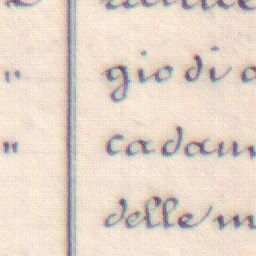 " gio di
" cadau
delle m